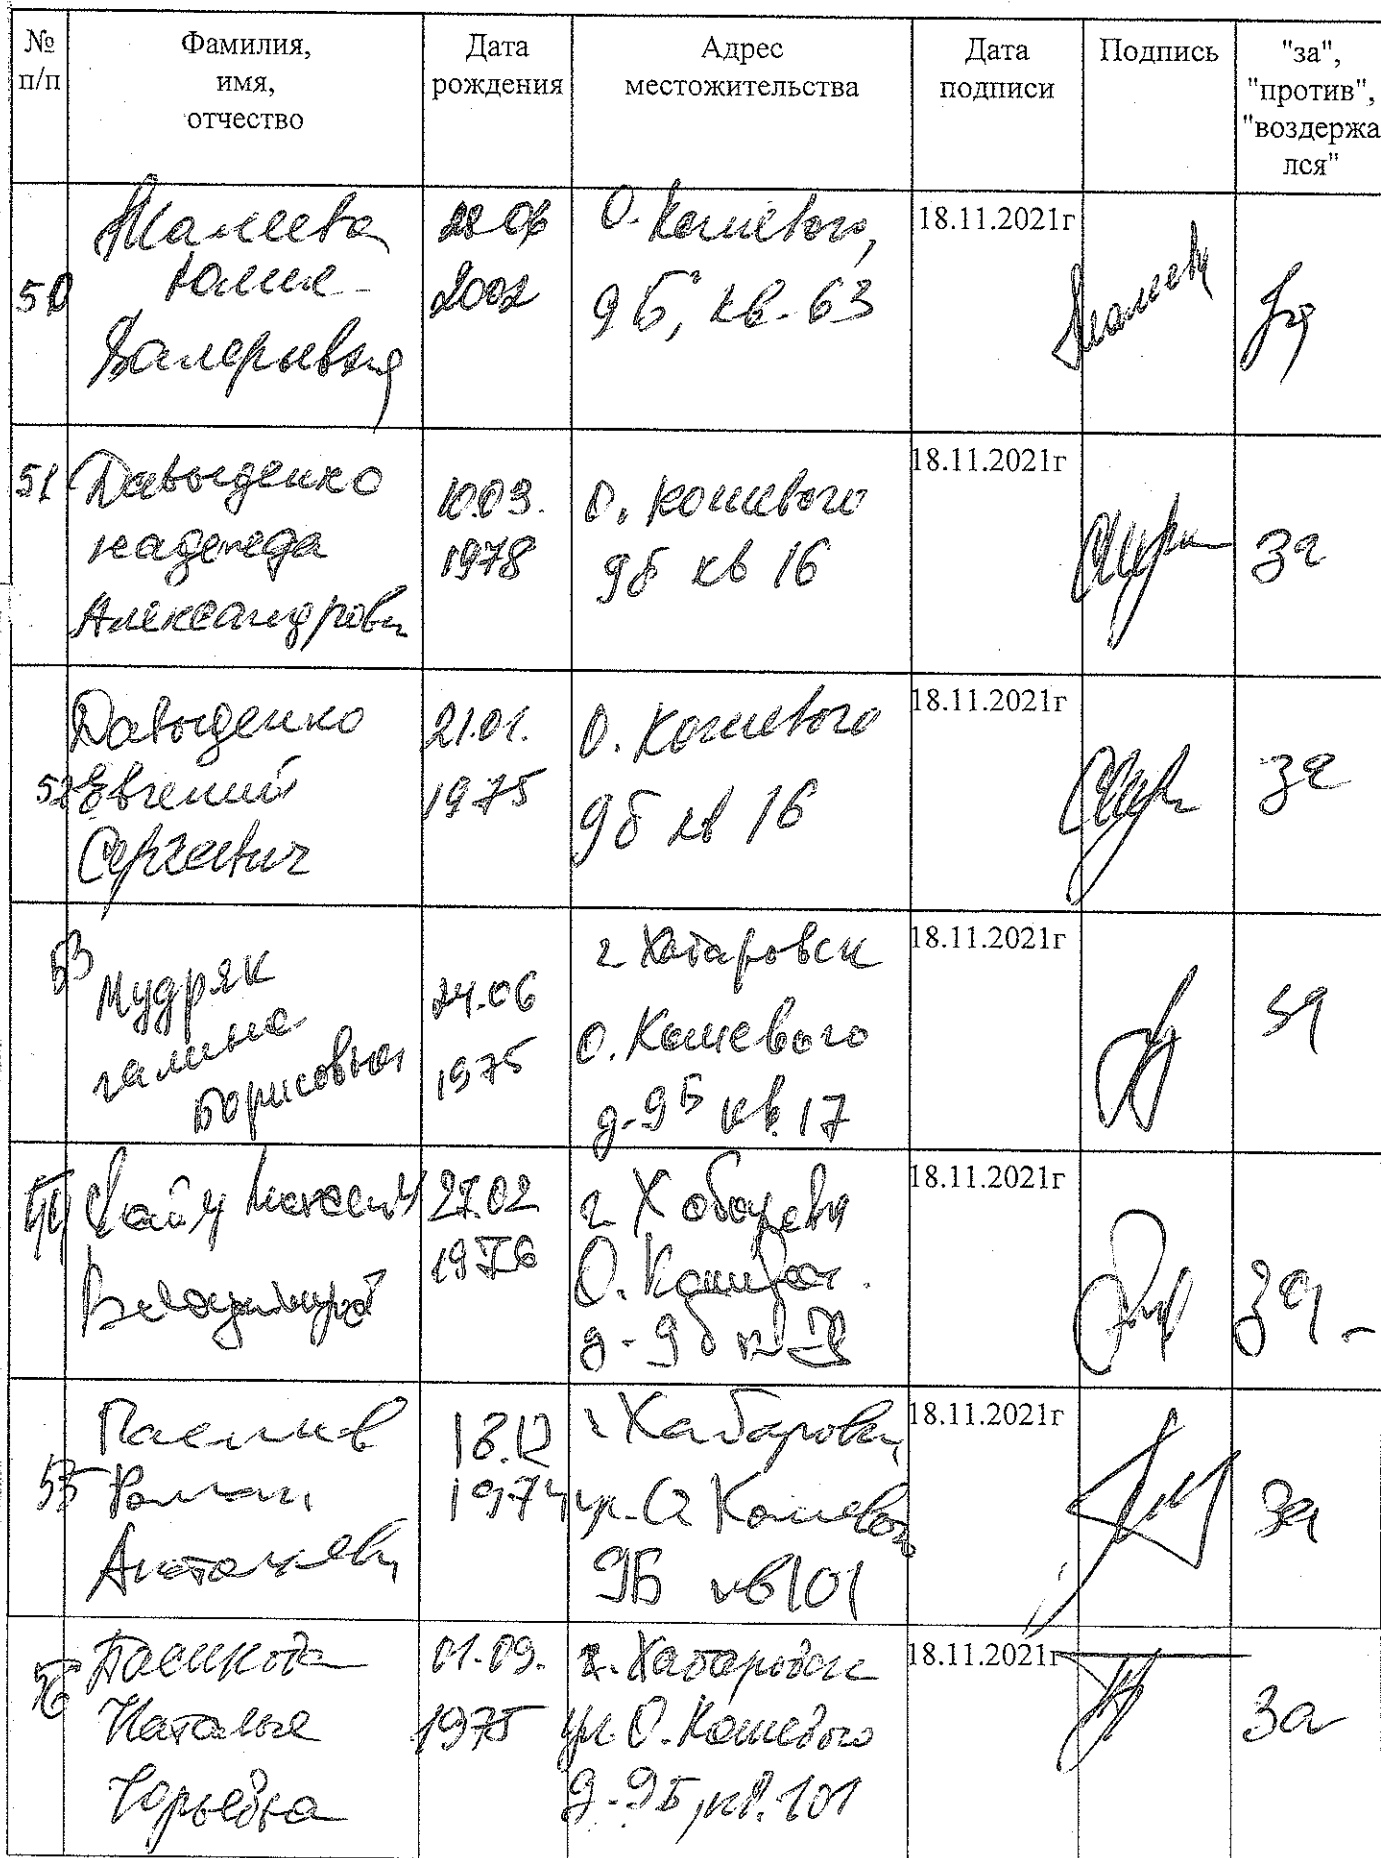 № п/п
Фамилия, имя, отчество
Дата рождения
Адрес местожительства
Дата подписи
Подпись
"за", "против", "воздержа лся"
50
Юлия
Валерьевна
2002
О. Кошевого,
9Б, кв. 63
18.11.2021г
За
51
Давыденко
надежда
Александровн
10.03.
1978
О. Кошевого
9б кв 16
18.11.2021г
За
52
Давыденко
Евгений
Сергеевич
21.01.
1975
О. Кошевого
9б кв 16
18.11.2021г
За
53
Мудряк
галина
Борисовна
24.06
1975
г Хабаровск
О. Кошевого
д-9Б кв. 17
18.11.2021г
за
54
Владимиров
27.02
г
О.
д-9б
18.11.2021г
За -
55
Роман
18.12
1974
г Хабаровск
ул. О Кошевого
9Б кв 101
18.11.2021г
За
56
Наталья
Юрьевна
01.09.
1975
г. Хабаровск
ул. О. Кошевого
д-9Б, кв. 101
18.11.2021г
За